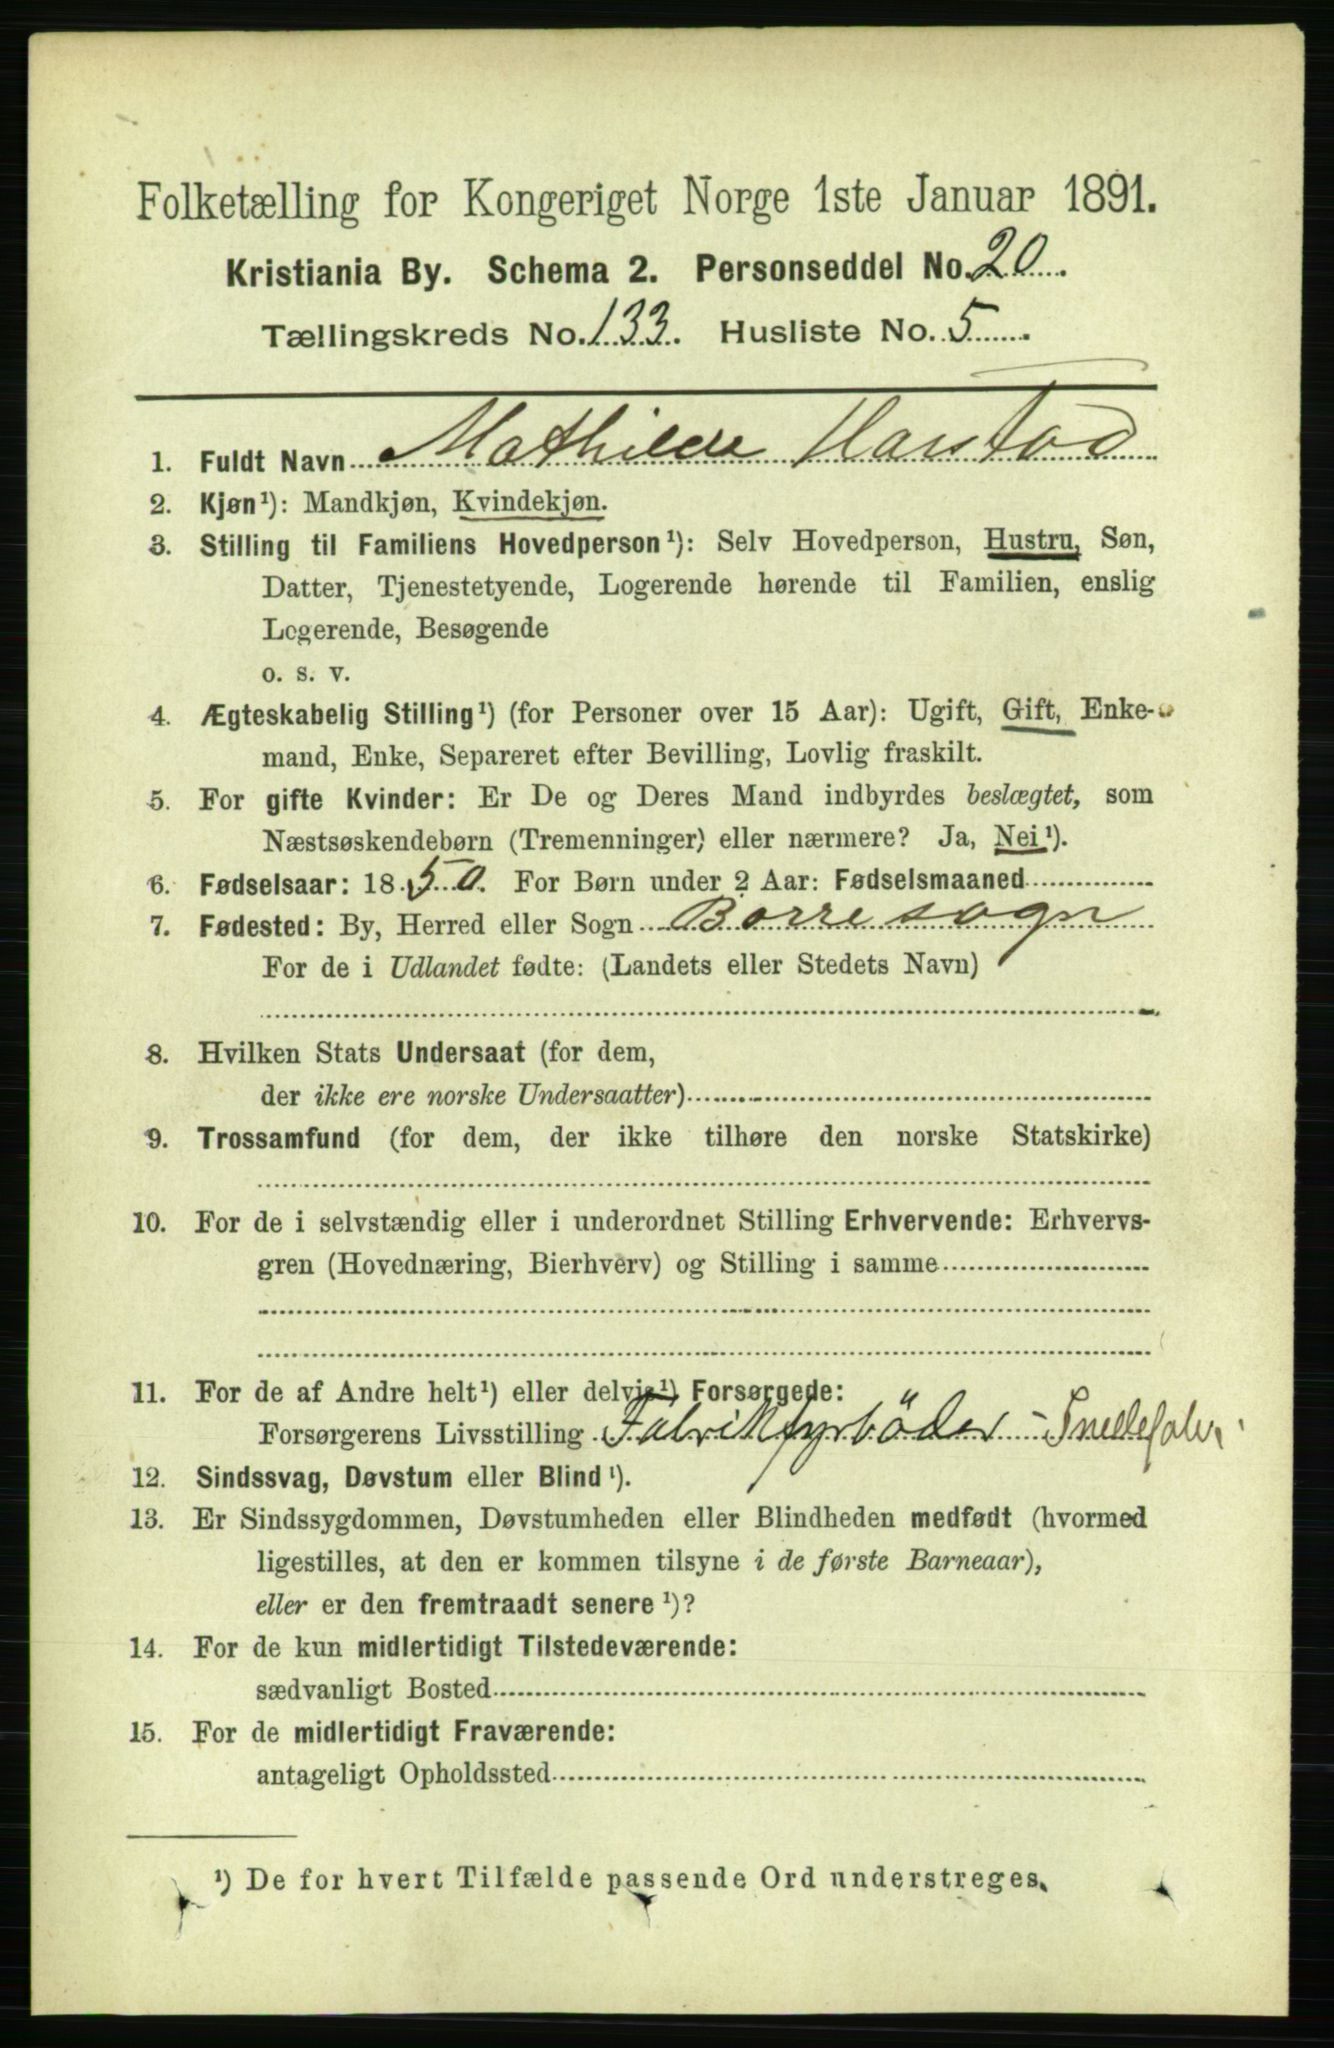 Folketælling for Kongeriget Norge 1ste Januar 1891.
Kristiania By. Schema 2. Personseddel No. 20.
Tællingskreds No. 133. Husliste No. 5.
1. Fuldt Navn Mathilde Harstad
2. Kjøn¹): Mandkjøn, Kvindekjøn.
3. Stilling til Familiens Hovedperson¹): Selv Hovedperson, Hustru, Søn,
Datter, Tjenestetyende, Logerende hørende til Familien, enslig
Logerende, Besøgende
o. s. v.
4. Ægteskabelig Stilling¹) (for Personer over 15 Aar): Ugift, Gift, Enke-
mand, Enke, Separeret efter Bevilling, Lovlig fraskilt.
5. For gifte Kvinder: Er De og Deres Mand indbyrdes beslægtet, som
Næstsøskendebørn (Tremenninger) eller nærmere? Ja, Nei¹).
6. Fødselsaar: 1850. For Børn under 2 Aar: Fødselsmaaned
7. Fødested: By, Herred eller Sogn Borre sogn
For de i Udlandet fødte: (Landets eller Stedets Navn)
8. Hvilken Stats Undersaat (for dem,
der ikke ere norske Undersaatter)
9. Trossamfund (for dem, der ikke tilhøre den norske Statskirke)
10. For de i selvstændig eller i underordnet Stilling Erhvervende: Erhvervs-
gren (Hovednæring, Bierhverv) og Stilling i samme
11. For de af Andre helt¹) eller delvis¹) Forsørgede:
Forsørgerens Livsstilling Fabrikfyrböder -
12. Sindssvag, Døvstum eller Blind¹).
13. Er Sindssygdommen, Døvstumheden eller Blindheden medfødt (hvormed
ligestilles, at den er kommen tilsyne i de første Barneaar),
eller er den fremtraadt senere¹)?
14. For de kun midlertidigt Tilstedeværende:
sædvanligt Bosted
15. For de midlertidigt Fraværende:
antageligt Opholdssted
¹) De for hvert Tilfælde passende Ord understreges.